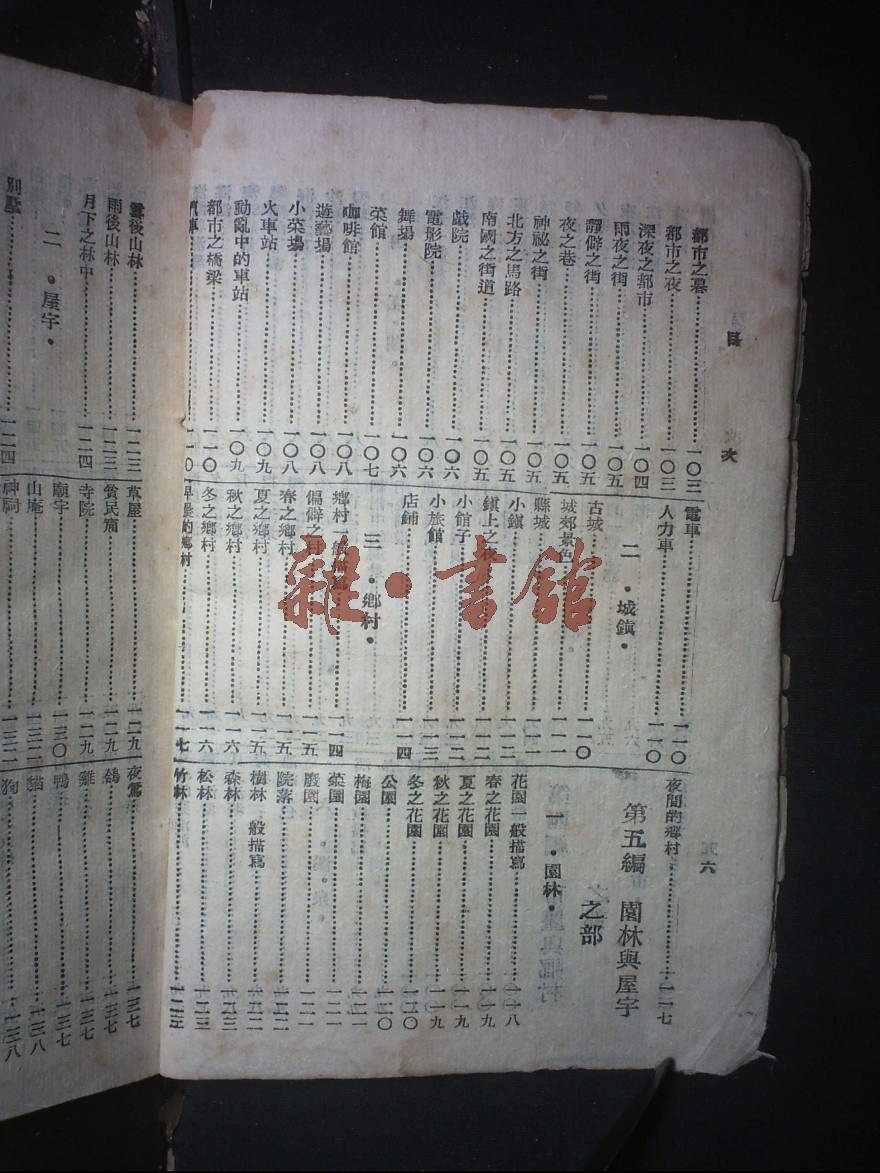 目次
五六
都市之暮……一〇三
都市之夜……一〇三
深夜之都市……一〇四
雨夜之街……一〇五
靜僻之街……一〇五
夜之巷……一〇五
神祕之街……一〇五
北方之馬路……一〇五
南國之街道……一〇五
戲院……一〇六
電影院……一〇六
舞場……一〇六
菜館……一〇七
咖啡館……一〇八
遊藝場……一〇八
小菜場……一〇八
火車站……一〇九
動亂中的車站……一〇九
都市之橋梁……一一〇
汽車……一一〇
電車……一一〇
人力車……一一〇
二·城鎮·
古城……一一〇
城郊景色……一一一
縣城……一一一
小鎮……一一二
鎮上之夜……一一二
小館子……一一二
小旅館……一一三
店鋪……一一四
三·鄉村·
鄉村一般描寫……一一四
偏僻之村……一一五
春之鄉村……一一五
夏之鄉村……一一五
秋之鄉村……一一六
冬之鄉村……一一六
早晨的鄉村……一一七
夜間的鄉村……一一七
第五編 園林與屋宇
之部
一·園林·
花園一般描寫……一一八
春之花園……一一九
夏之花園……一一九
秋之花園……一一九
冬之花園……一二〇
公園……一二〇
梅園……一二一
菜園……一二一
廢園……一二一
院落……一二二
樹林一般描寫……一二二
森林……一二三
松林……一二三
竹林……一二三
雪後山林……一二三
雨後山林……一二三
月下之林中……一二四
二·屋宇·
別墅……一二四
草屋……一二九
貧民窟……一二九
寺院……一二九
廟宇……一三〇
山庵……一三二
神祠……一三二
夜鶯……一三七
鴿……一三七
雞……一三七
鴨……一三七
貓……一三八
狗……一三八
雜·書館